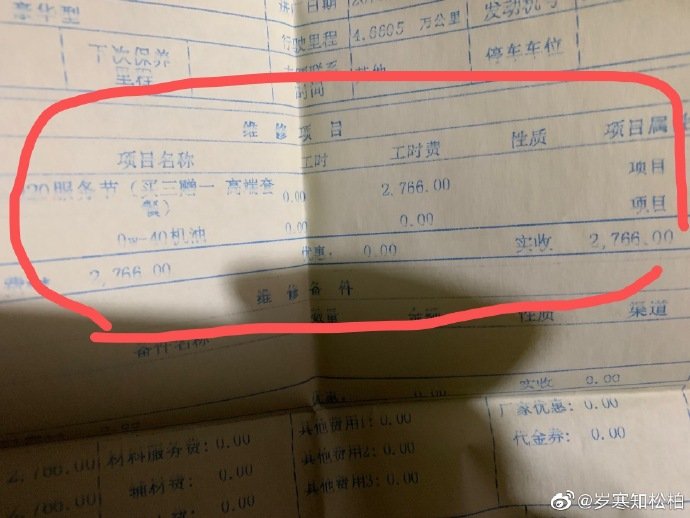 豪华型
行驶里程 4.6605 万公里 发动机号
下次保养 停车车位
时间 其他
维修项目
项目名称 工时 工时费 性质 项目属
20服务节（买三赠一 高端套 0.00 2,766.00 项目
餐）
0w-40机油 0.00 0.00 项目
优惠: 0.00 实收 2,766.00
2,766.00
维修备件
备件名称 数量 性质 渠道
实收 0.00
2,766.00 材料服务费: 0.00 其他费用1: 0.00 厂家优惠: 0.00
2,766.00 辅材费: 0.00 其他费用2: 0.00 代金券: 0.00
0.00 其他费用3: 0.00
@岁寒知松柏